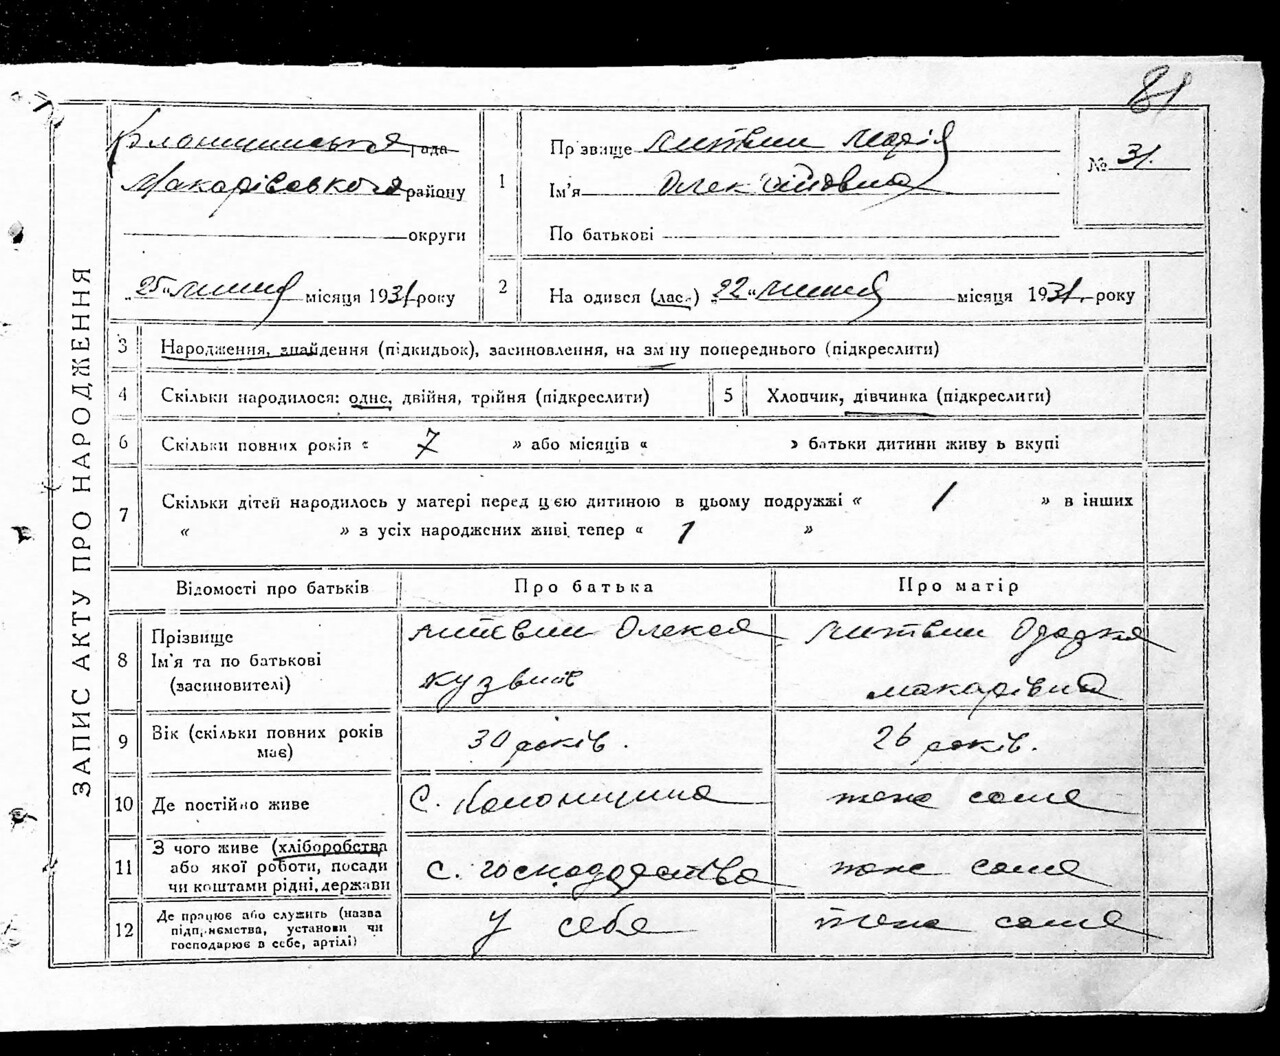 81
ЗАПИС АКТУ ПРО НАРОДЖЕННЯ
рада
Макарівського району
округи
„25“ липня місяця 1931 року
1
Прізвище Литвин Марія
Ім'я Олексіївна
По батькові
№ 31.
2
На одився (лас.) „22“ липня місяця 1931. року
3 Народження, знайдення (підкидьок), засиновлення, на зм ну попереднього (підкреслити)
4 Скільки народилося: одне, двійня, трійня (підкреслити)
5 Хлопчик, дівчинка (підкреслити)
6 Скільки повних років « 7 » або місяців « » батьки дитини живу ь вкупі
7 Скільки дітей народилось у матері перед цією дитиною в цьому подружжі « 1 » в інших
« » з усіх народжених живі тепер « 1 »
Відомості про батьків Про батька Про матір
8 Прізвище Ім'я та по батькові (засиновителі)
Литвин Олексій
Литвин
Макарівна
9 Вік (скільки повних років має) 30 років. 26 років.
10 Де постійно живе С. Колонщина теж саме
11 З чого живе (хліборобства
або якої роботи, посади
чи коштами рідні, держави
с. господарства теж саме
12 Де працює або служить (назва
підприємства, установи чи
господарює в себе, артілі)
у себе теж саме